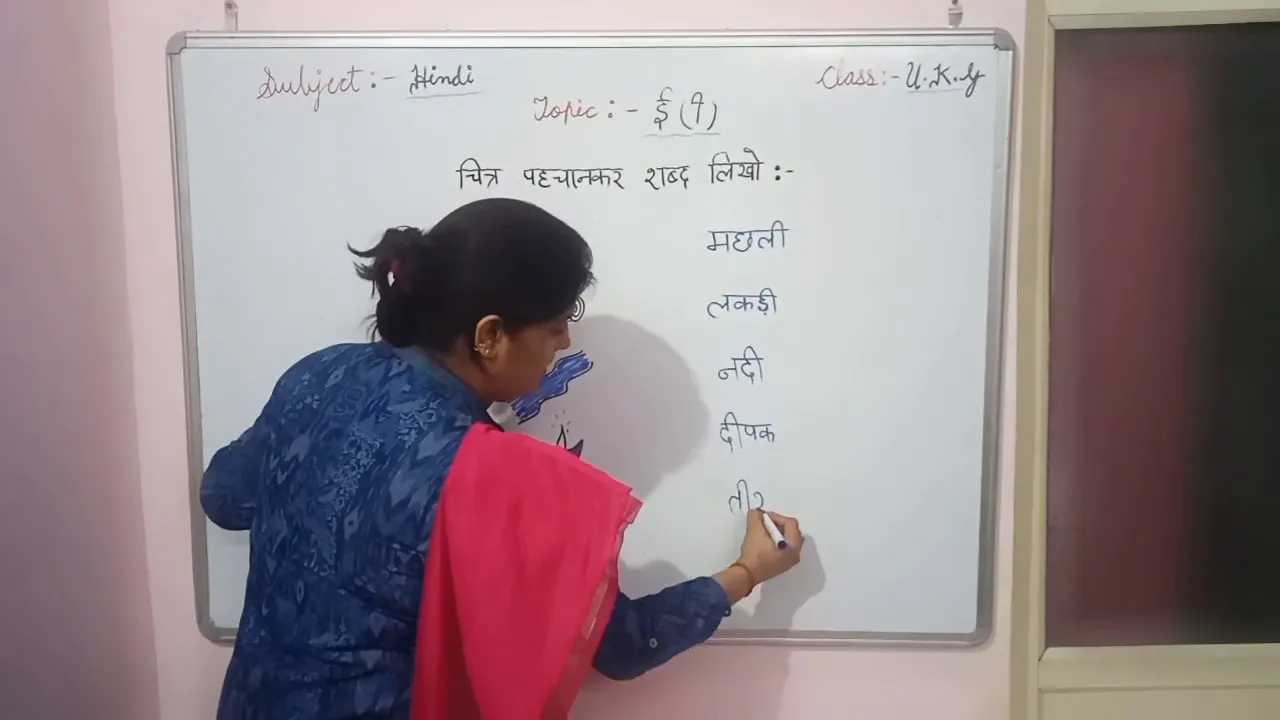 Subject :- Hindi
Class :- U.K.G
Topic :- ई (ी)
चित्र पहचानकर शब्द लिखो :-
मछली
लकड़ी
नदी
दीपक
तीर